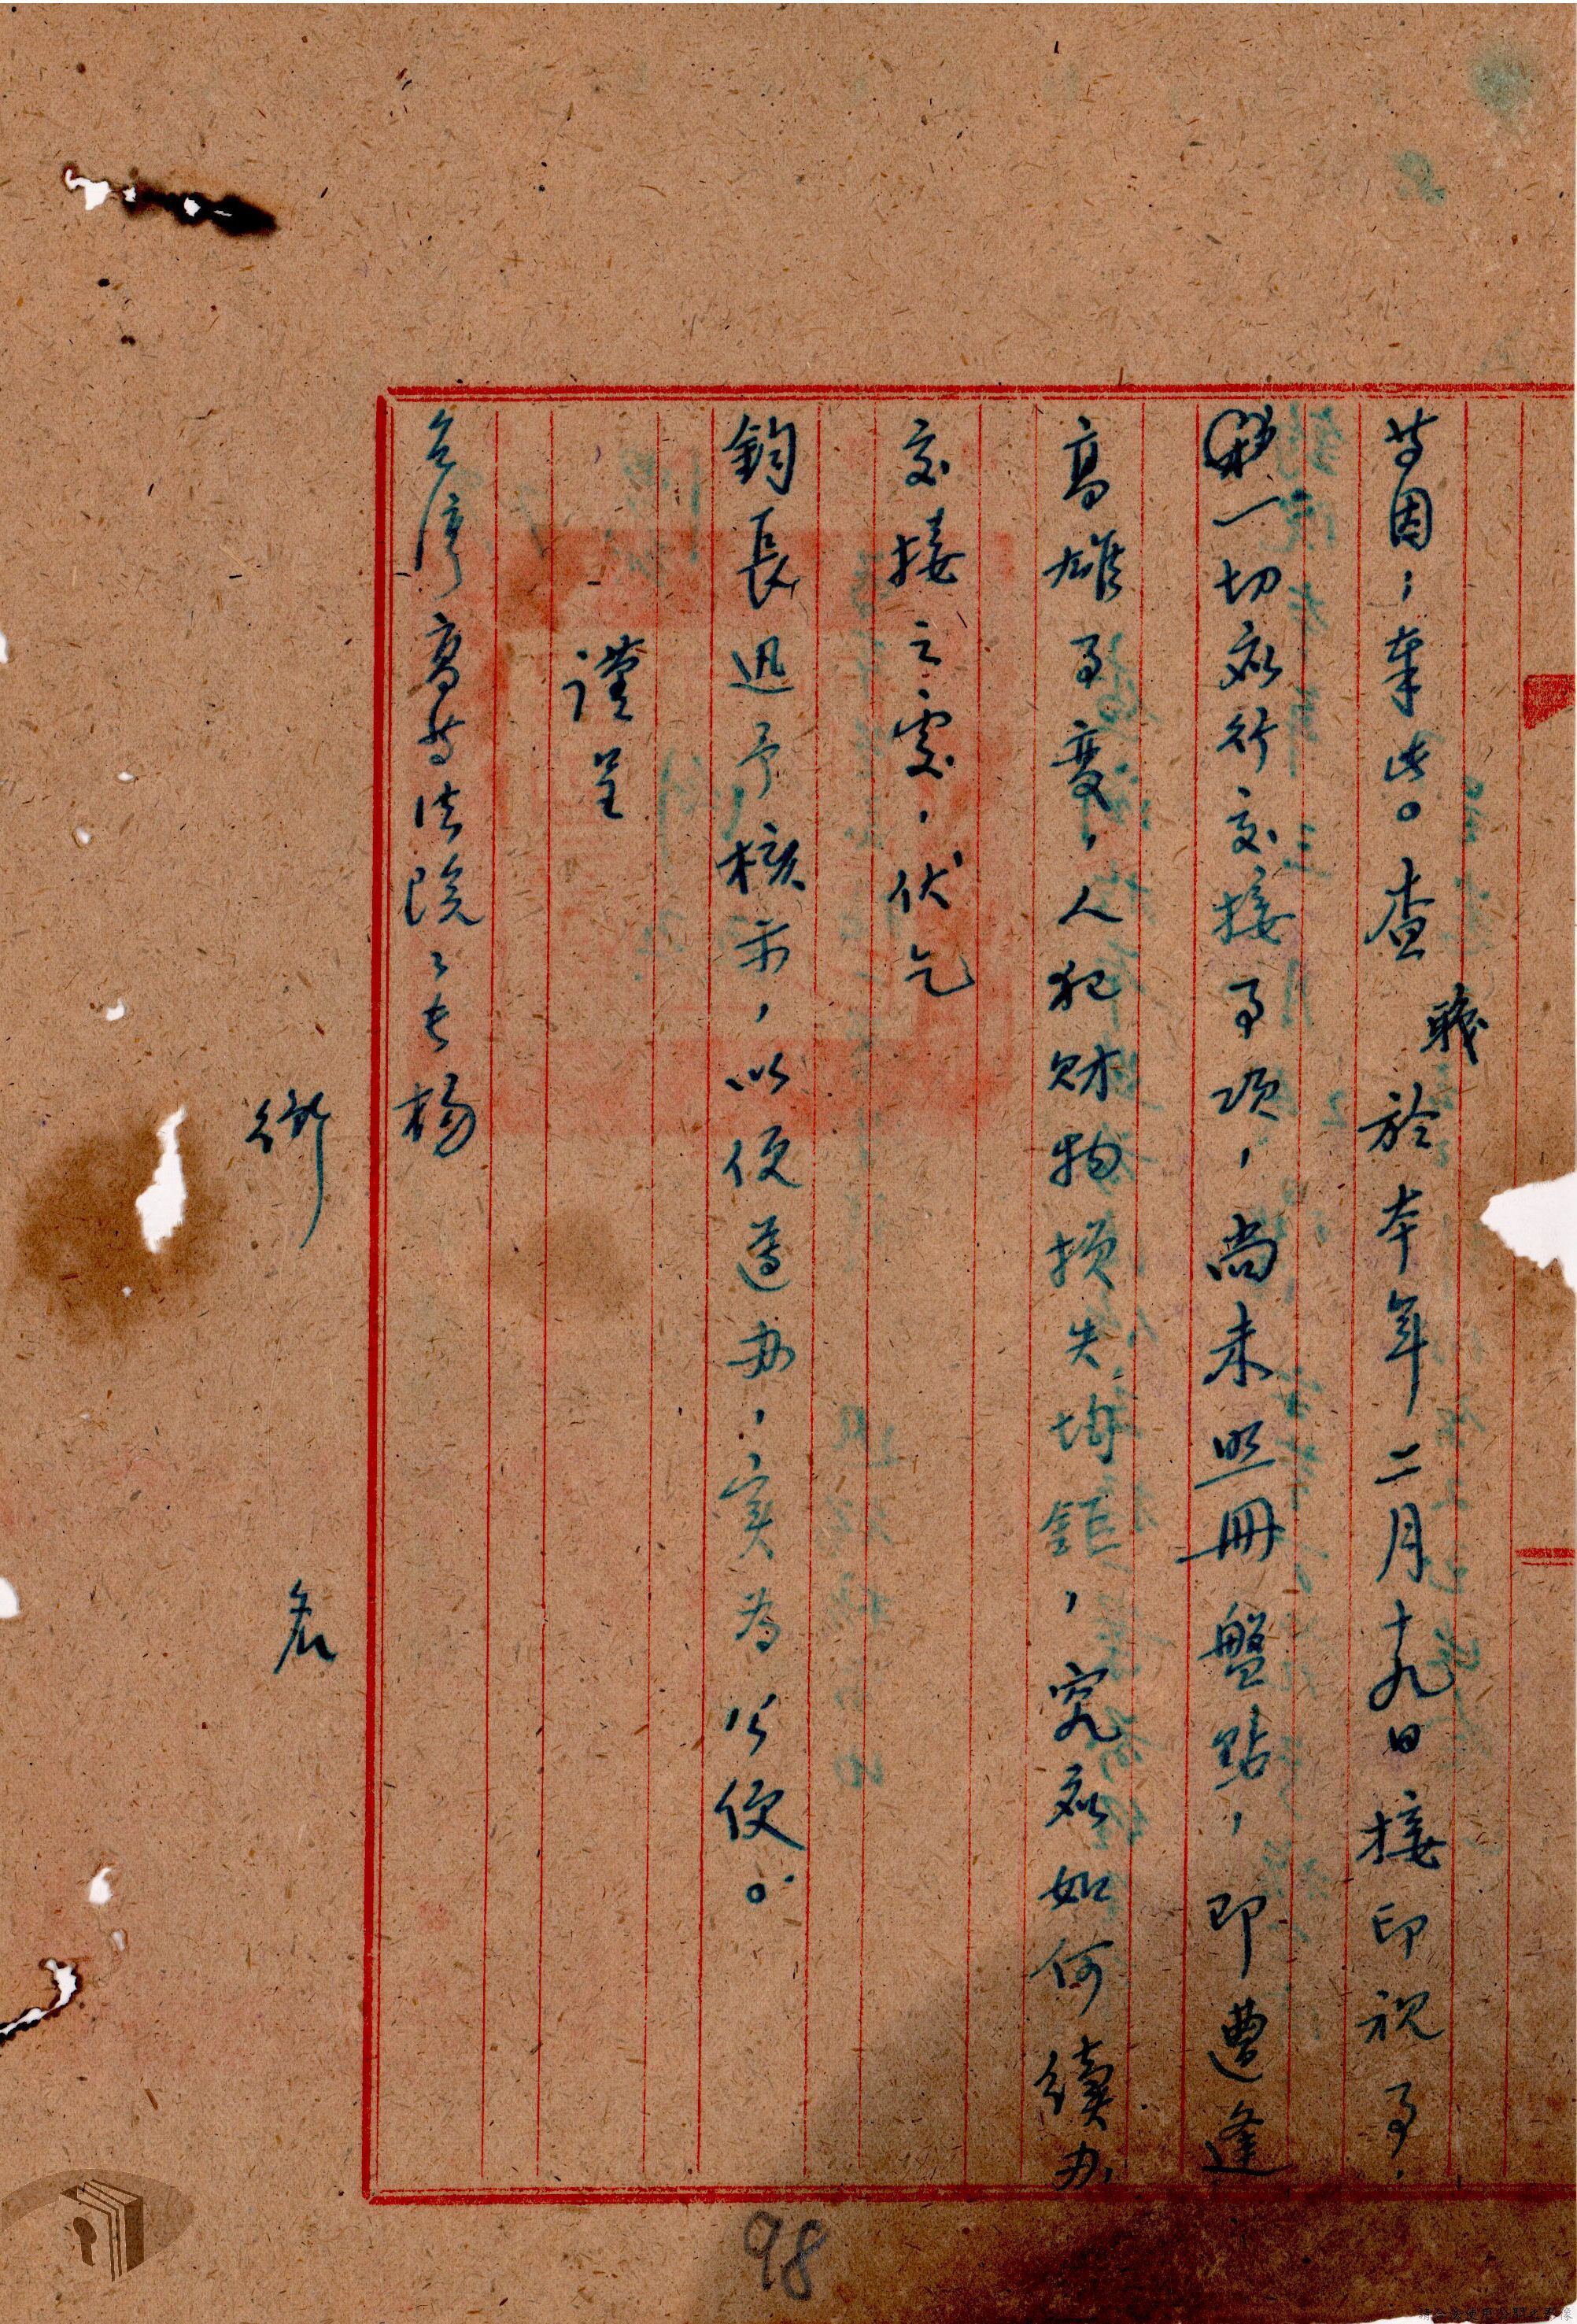 等因；奉此。查職於本年二月十九日接印視事，
一切應行交接事項，尚未照册盤點，即遭逢
高雄事变，人犯財物損失均鉅，究應如何續办
交接之處，伏乞
鈞長迅予核示，以便遵办，實為公便。
謹呈
台灣高等法院々長楊
銜 名
98